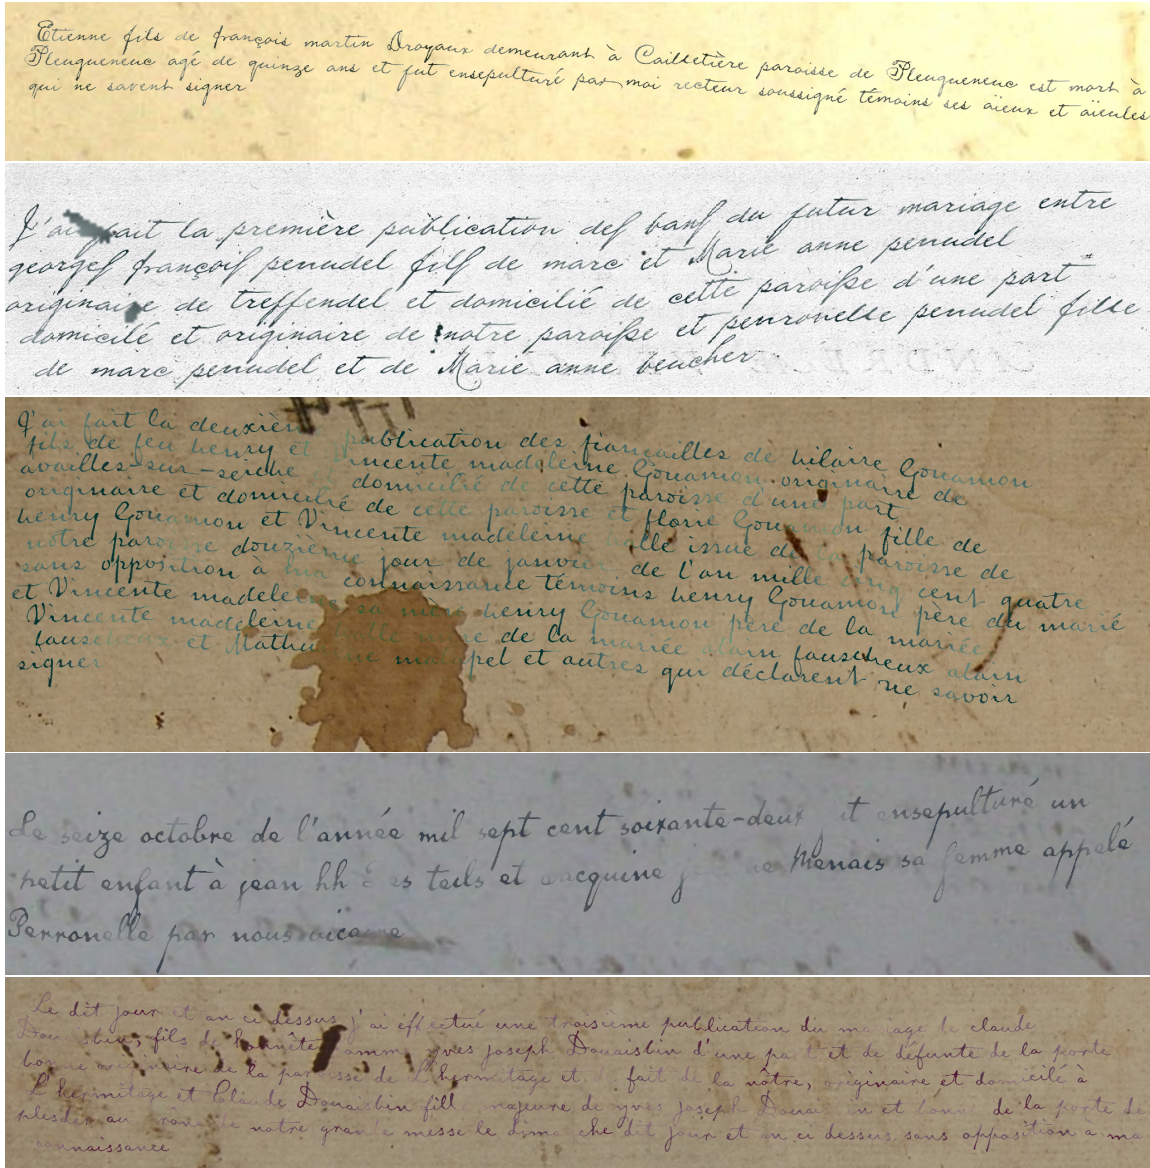 Etienne fils de françois martin Droyaux demeurant à Cailletière paroisse de Pleugueneuc est mort à
Pleugueneuc agé de quinze ans et fut ensepulturé par moi recteur soussigné témoins ses aïeux et aïeules
qui ne savent signer
J'ai fait la première publication des bans du futur mariage entre
georges françois penudel fils de marc et Marie anne penudel
originaire de treffendel et domicilié de cette paroisse d'une part
domicilé et originaire de notre paroisse et penronelse penudel filse
de marc penudel et de Marie anne beucher
J'ai fait la deuxièm publication des fiancailles de hilaire Gouamon
fils de feu henry et incente madeleine Gouamon originaire de
availles-sur-seiche domicilié de cette paroisse d'une part
originaire et domicilié de cette paroisse et florie Gouamon fille de
henry Gouamon et Vincente madeleine halle issue de la paroisse de
notre paroisse douzième jour de janvier de l'an mille cinq cent quatre
sans opposition à ma connaissance témoins henry Gouamon père du marié
et Vincente madeleine sa mère henry Gouamon père de la mariée
Vincente madeleine halle mère de la mariée alain fauscheux alain
fauscheux et Mathurine malapel et autres qui déclarent ne savoir
signer
Le seize octobre de l'année mil sept cent soixante-deux it ensepulturé un
petit enfant à jean hh es teils et jacquine Menais sa femme appelé
Perronelle par nous vicaire
Le dit jour et an ci dessus j'ai éffectué une troisième publication du mariage de claude
Douaisbin fils de honnête homme yves joseph Douaisbin d'une part et de défunte de la porte
bonne originaire de la paroisse de L'hermitage et fait de la nôtre, originaire et domicilé à
L'hermitage et Claude Douaisbin fill majeure de yves joseph Douaisbin et bonne de la porte de
plesder au prône de notre grande messe le dimanche dit jour et an ci dessus sans opposition a ma
connaissance